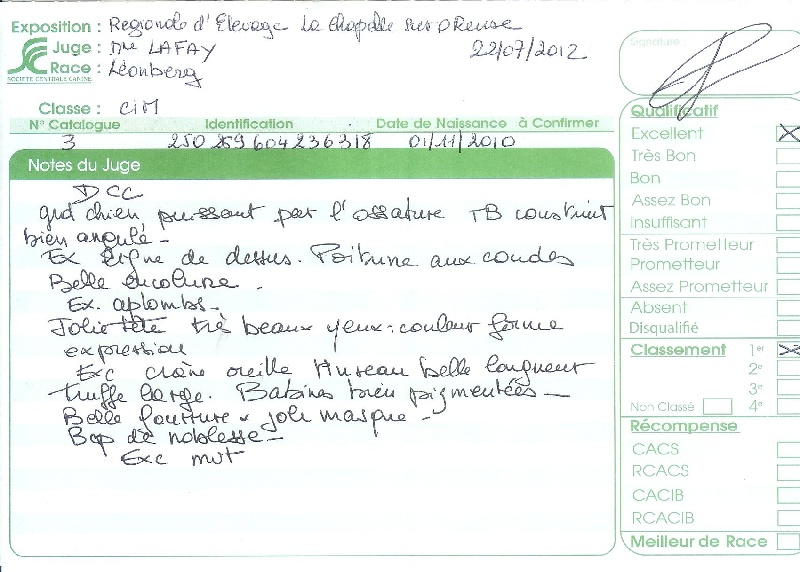 Exposition : Regionale d'Elevage La Chapelle sur DReuse
Juge : Mme LAFAY
22/07/2012
Race : Léonberg
SOCIÉTÉ CENTRALE CANINE
Classe : CIM
N° Catalogue Identification Date de Naissance à Confirmer
3 250 259 604 236318 01/11/2010
Notes du Juge
DCC
grd chien puissant par l'ossature TB construit
bien angulé -
Ex ligne de dessus. Poitrine aux coudes
Belle encolure.
Ex. aplombs -
Jolie tête très beaux yeux : couleur forme
expression
Exc crâne oreille Museau belle longueur
truffe large. Babines bien pigmentées -
Belle fourrure x joli masque -
Bcp de noblesse -
Exc mvt
Signature :
Qualificatif
Excellent
Très Bon
Bon
Assez Bon
Insuffisant
Très Prometteur
Prometteur
Assez Prometteur
Absent
Disqualifié
Classement 1er
2e
3e
Non Classé 4e
Récompense
CACS
RCACS
CACIB
RCACIB
Meilleur de Race